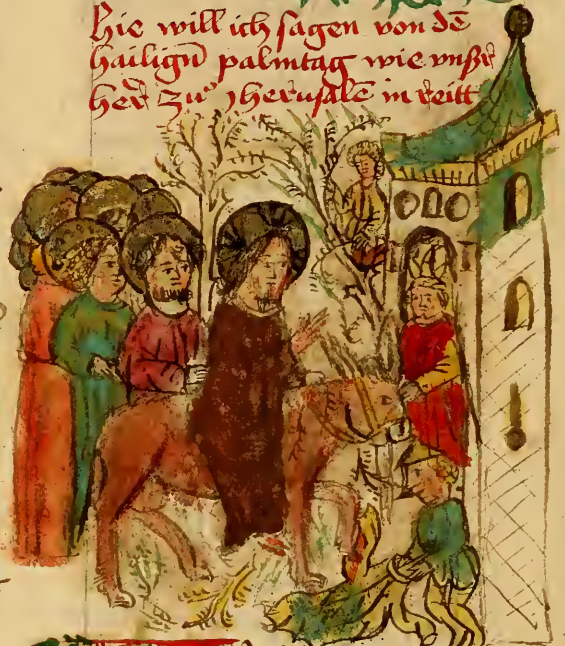 Hie will ich sagen von dē
hailignꝰ palmtag wie vnßꝛ
her̄ zuͦ jherusalē in reitt